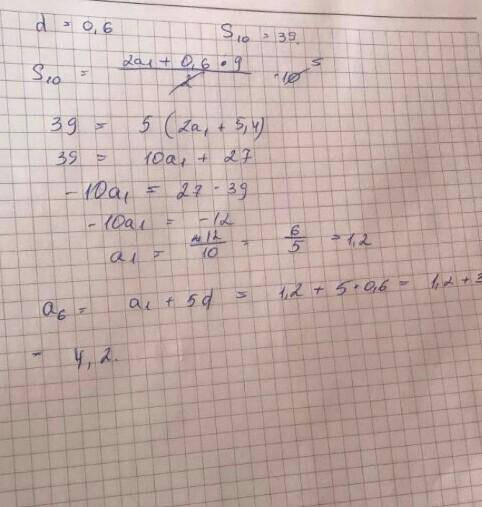 d = 0,6 S₁₀ = 39.
S₁₀ = (2a₁ + 0,6 • 9)/2 · 10 5
39 = 5 (2a₁ + 5,4)
39 = 10a₁ + 27
-10a₁ = 27 - 39
-10a₁ = -12
a₁ = 12/10 = 6/5 = 1,2
a₆ = a₁ + 5d = 1,2 + 5•0,6 = 1,2 + 3
= 4,2.